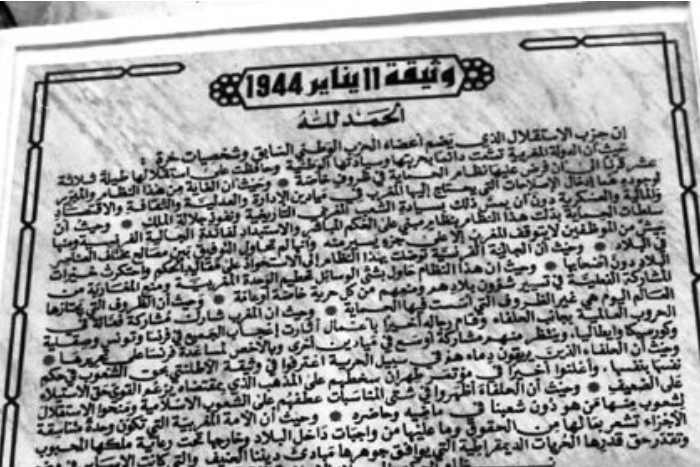 وثيقة 11 يناير 1944
الحمد لله
إن حزب الاستقلال الذي يضم أعضاء الحزب الوطني السابق وشخصيات حرة :
حيث أن الدولة المغربية تمتعت دائما بحريتها وسيادتها الوطنية وحافظت على استقلالها طيلة ثلاثة
عشر قرنا إلى أن فرض عليها نظام الحماية في ظروف خاصة * وحيث أن الغاية من هذا النظام والمبرر
لوجوده هما إدخال الإصلاحات التي يحتاج إليها المغرب في ميادين الإدارة والعدلية والثقافة والاقتصاد
والمالية والعسكرية دون أن يمس ذلك بسيادة الشعب المغربي التاريخية ونفوذ جلالة الملك * وحيث أن
سلطات الحماية بدلت هذا النظام بنظام مبني على الحكم المباشر والاستبداد لفائدة الجالية الفرنسية ومنها
جيش من الموظفين لا يتوقف المغرب إلا على جزء يسير منه وأنها لم تحاول التوفيق بين مصالح مختلف العناصر
في البلاد * وحيث أن الجالية الفرنسية توصلت بهذا النظام إلى الاستحواذ على مقاليد الحكم واحتكرت خيرات
البلاد دون أصحابها * وحيث أن هذا النظام حاول بشتى الوسائل تحطيم الوحدة المغربية ومنع المغاربة من
المشاركة الفعلية في تسيير شؤون بلادهم ومنعهم من كل حرية خاصة أو عامة * وحيث أن الظروف التي يجتازها
العالم اليوم هي غير الظروف التي أسست فيها الحماية * وحيث أن المغرب شارك مشاركة فعالة في
الحروب العالمية بجانب الحلفاء وقام رجاله أخيرا بأعمال أثارت إعجاب الجميع في فرنسا وتونس وصقلية
وكورسيكا وإيطاليا، وينتظر منهم مشاركة أوسع في ميادين أخرى وبالأخص لمساعدة فرنسا على تحريرها *
وحيث أن الحلفاء الذين يريقون دماءهم في سبيل الحرية اعترفوا في وثيقة الأطلنتي بحق الشعوب في حكم
نفسها بنفسها، وأعلنوا أخيرا في مؤتمر طهران سخطهم على المذهب الذي بمقتضاه يزعم القوي حق الاستيلاء
على الضعيف * وحيث أن الحلفاء أظهروا في شتى المناسبات عطفهم على الشعوب الإسلامية ومنحوا الاستقلال
لشعوب منها من هو دون شعبنا في ماضيه وحاضره * وحيث أن الأمة المغربية التي تكون وحدة متناسقة
الأجزاء تشعر بما لها من الحقوق وما عليها من واجبات داخل البلاد وخارجها تحت رعاية ملكها المحبوب
وتقدر حق قدرها الحريات الديمقراطية التي يوافق جوهرها مبادئ ديننا الحنيف والتي كانت الأساس في وضع